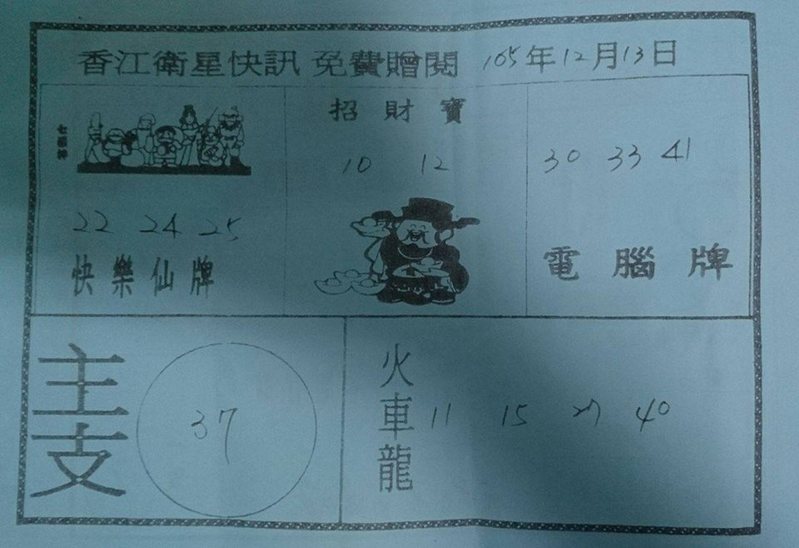 香江衛星快訊 免費贈閱 105年12月13日
七福神
22 24 25
快樂仙牌
招財寶
10 12
30 33 41
電腦牌
主支
37
火車龍
11 15 27 40